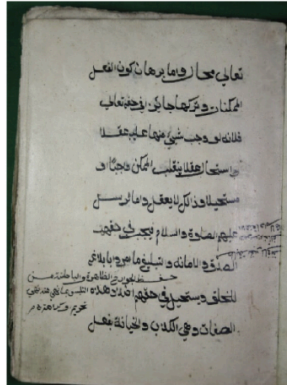 تعالى محال وامابرهان كون الفعل
الممكنات وتركها جائز في حقه تعالى
فلانه لو وجب شئ منها عليه عقلا
او استحال عقلا ينقلب الممكن واجبا او
مستحيلا وذالك لا يعقل واما الرسل
عليهم الصلوة والسلام فيجب في حقهم
الصدق والامانة والتبليغ ما امروا ببلاغه
للخلق ويستحيل في حقهم اضداد هذه
الصفات وهي الكذب والخيانة بفعل